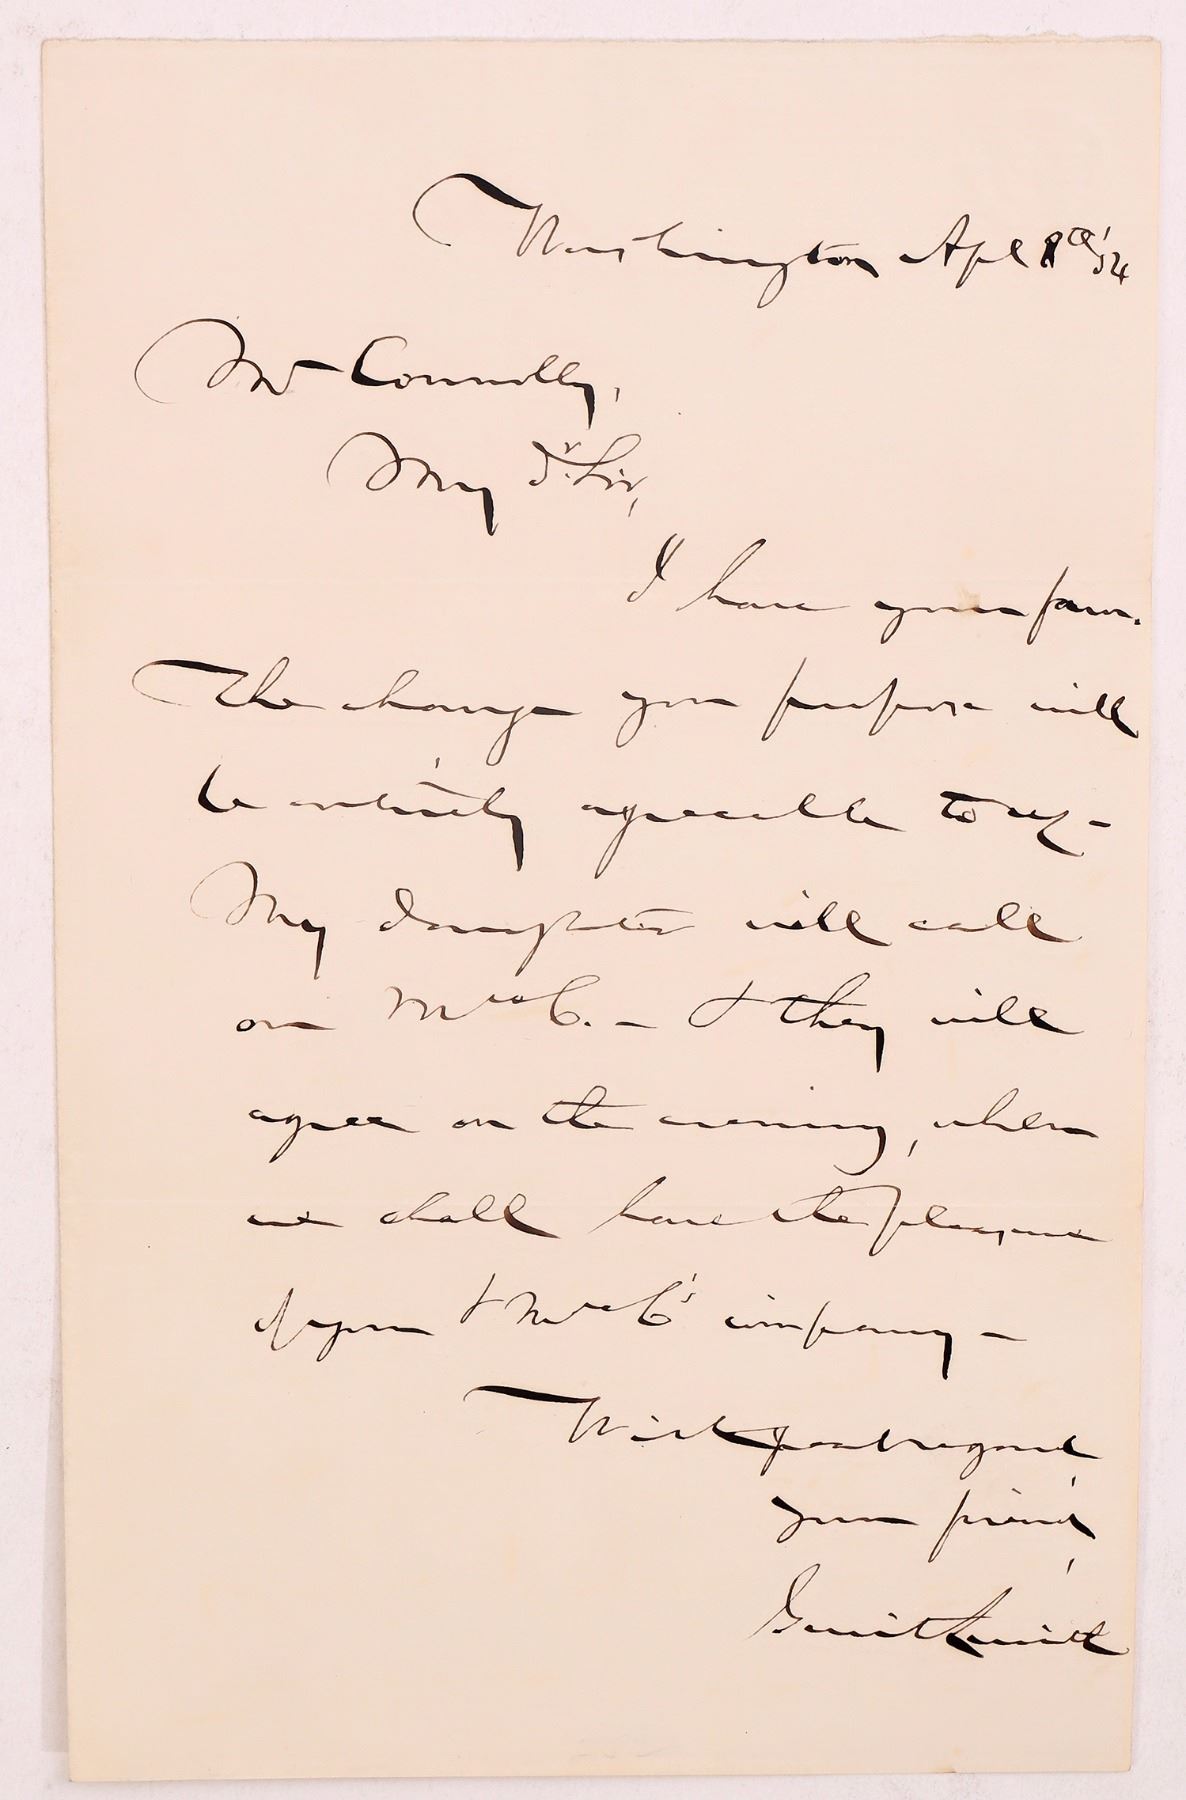 Washington Apl 8th '54
Mr Connolly,
My Dr. Sir,
I have your favor.
The change you propose will
be entirely agreeable to us -
My daughter will call
on Mrs C. - & they will
agree on the evening, when
we shall have the pleasure
of your & Mrs C's company -
With great regard
your friend,
Gerrit Smith